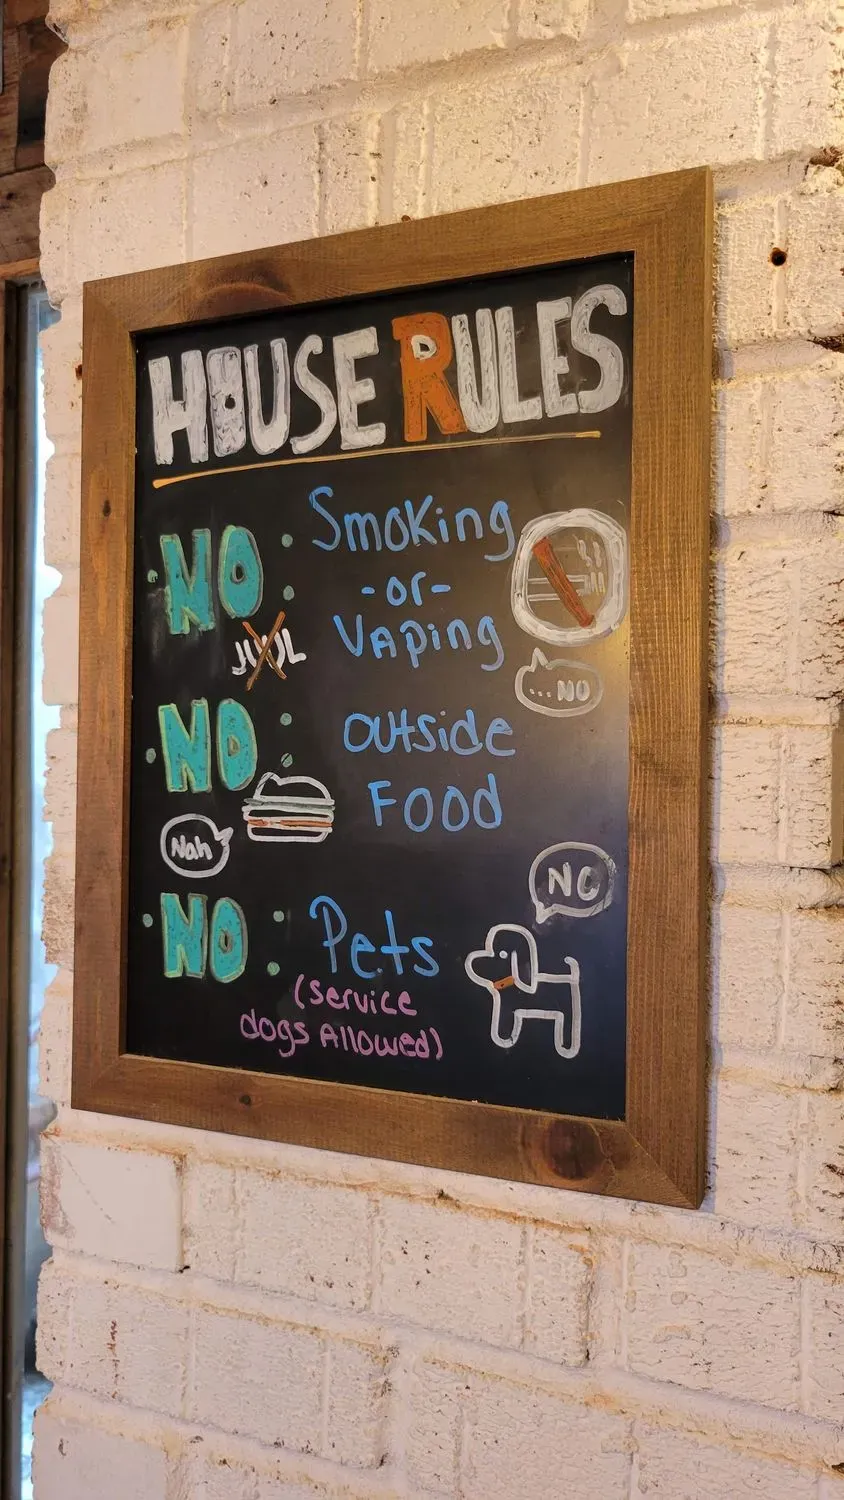 HOUSE RULES
NO: Smoking
-or-
Vaping
JUUL
...NO
NO: Outside
Food
Nah
NO
NO: Pets
(Service
dogs Allowed)